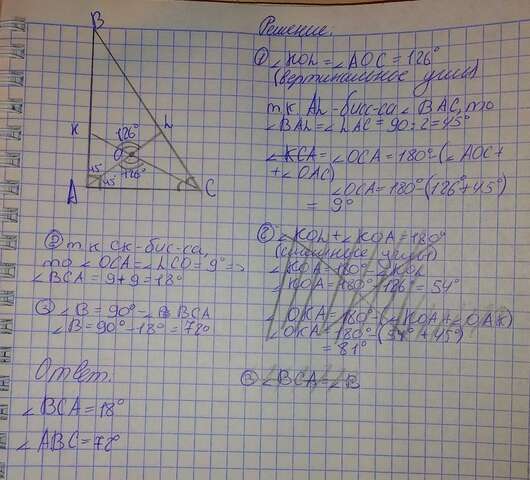 B
K
L
126°
O
126°
45°
45°
A
C
Решение.
① ∠KOL = ∠AOC = 126°
(вертикальное углы)
т.к. AL - бисс-са ∠BAC, то
∠BAL = ∠LAC = 90 : 2 = 45°
∠KCA = ∠OCA = 180° - (∠AOC +
+ ∠OAC)
∠OCA = 180° - (126° + 45°)
= 9°
② т.к. CK - бис-са,
то ∠OCA = ∠LCO = 9° =>
∠BCA = 9 + 9 = 18°
③ ∠B = 90° - ∠BCA
∠B = 90° - 18° = 72°
Ответ.
∠BCA = 18°
∠ABC = 72°
② ∠KOL + ∠KOA = 180°
(смежные углы)
∠KOA = 180° - ∠KOL
∠KOA = 180° - 126° = 54°
∠OKA = 180° - (∠KOA + ∠OAK)
∠OKA = 180° - (54° + 45°)
= 81°
③ ∠BCA = ∠B